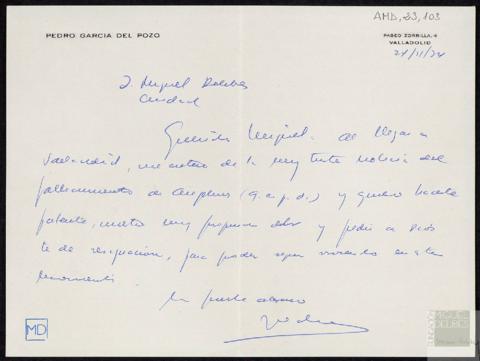 AMD, 33, 103
PEDRO GARCIA DEL POZO
PASEO ZORRILLA, 4
VALLADOLID
24/11/74
D. Miguel Delibes
Ciudad
Querido Miguel: Al llegar a
Valladolid, me entero de la muy triste noticia del
fallecimiento de Angelines (q.e.p.d.) y quiero hacerte
patente, nuestro muy profundo dolor y pedir a Dios
te de resignación, para poder seguir viviendo en este
Un fuerte abrazo
Pedro
MD
FUNDACIÓN
MIGUEL
DELIBES